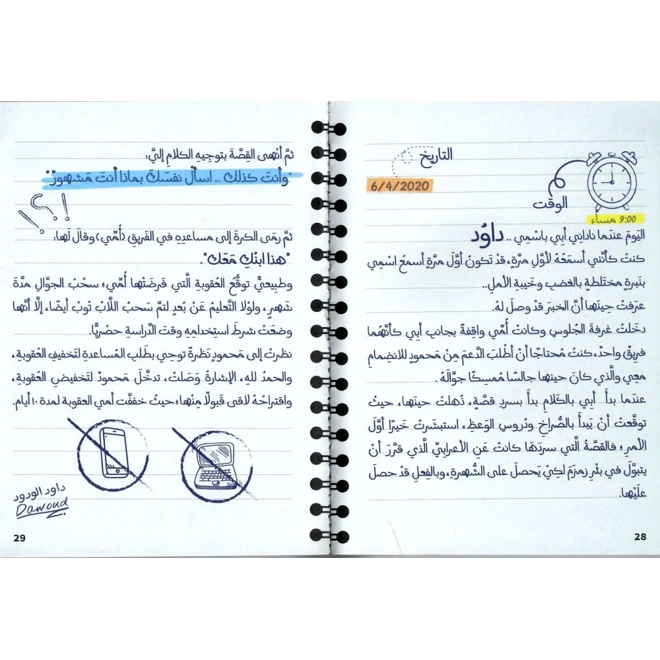 التاريخ
6/4/2020
الوقت
9:00 مساءً
اليوم عندما ناداني أبي باسْمِي .. داوُد
كنت كأنّني أسمَعُهُ لأوّل مرّةٍ، قد تكون أوّل مرّةٍ أسمعُ اسْمِي
بنَبرةٍ مختَلطةٍ بالغضب وخيبةِ الأملِ..
عرَفتُ حينَها أنّ الخبرَ قدْ وصلَ لهُ.
دخَلتُ غرفةَ الجُلوس وكانت أُمّي واقِفةً بجانبِ أبي كأنّهُما
فريقٌ واحدٌ، كنتُ مُحتاجًا أنْ أطلُبَ الدَّعمَ مِن مَحمودٍ للانضِمامِ
معِي والَّذي كانَ حينها جالسًا مُمسِكًا جوّالَهُ.
عندما بدأَ أبِي بالكَلامِ بدأَ بسردِ قصَّةٍ، ذُهلتُ حينَها، حيثُ
توقّعتُ أنْ يَبدأَ بالصُّراخِ ودُروسِ الوَعظِ، استبشَرتُ خيرًا أوّلَ
الأمرِ؛ فالقصَّةُ الَّتي سردَها كانتْ عَنِ الأعرابيِّ الَّذي قرّرَ أنْ
يتبوّلَ في بئرِ زمزمَ لكيْ يَحصلَ على الشُّهرةِ، وبالفِعلِ قدْ حصلَ
علَيْها.
28
ثمَّ أنْهى القِصَّةَ بتَوجِيهِ الكلامِ إليَّ:
"وأنتَ كذلكَ .. اسألْ نفسَكَ بماذا أنتَ مَشهورٌ"
!؟!
ثمَّ رمَى الكرةَ إلى مساعدِهِ في الفَريقِ (أُمّي) وقالَ لها:
"هذا ابنُكِ مَعَكِ".
وطبيعيٌّ توقُّعُ العُقوبةِ الَّتي فَرضَتْها أُمّي؛ سحْبُ الجوّالِ مدَّةَ
شَهرٍ، ولوْلا التَّعليمُ عَنْ بُعدٍ لتمَّ سَحبُ اللّابْ توبْ أيضًا، إلّا أنَّها
وضعَتْ شرطَ استِخدامِهِ وقتَ الدِّراسةِ حصْريًّا.
نظَرتُ إلى مَحمودٍ نَظرةً توحِي بطَلبِ المُساعدةِ لتَخفيفِ العُقوبةِ،
والحمدُ للهِ، الإشارةُ وَصلتْ، تدخَّلَ مَحمودٌ لتَخفيضِ العُقوبةِ،
واقتراحُهُ لاقَى قَبولًا مِنْها؛ حيثُ خفَّفتْ أُمي العقوبةَ لمدةِ ١٠ أيامٍ.
داود الودود
Dawoud
29